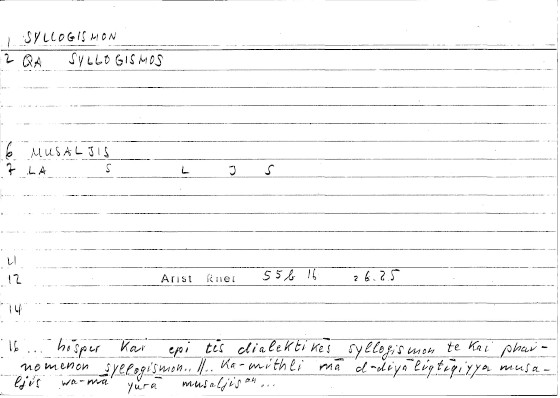 1 SYLLOGISMON
2 QA SYLLOGISMOS
6 MUSALJIS
7 LA S L J S
11
12 Arist Rhet 55b 16 26.25
14
16 ... hōsper kai epi tēs dialektikēs syllogismon te kai phai-
nomenon syllogismon..//.. Ka-mithli mā d-diyāliqtīqiyya musa-
ljis wa-mā yurā musaljisan...